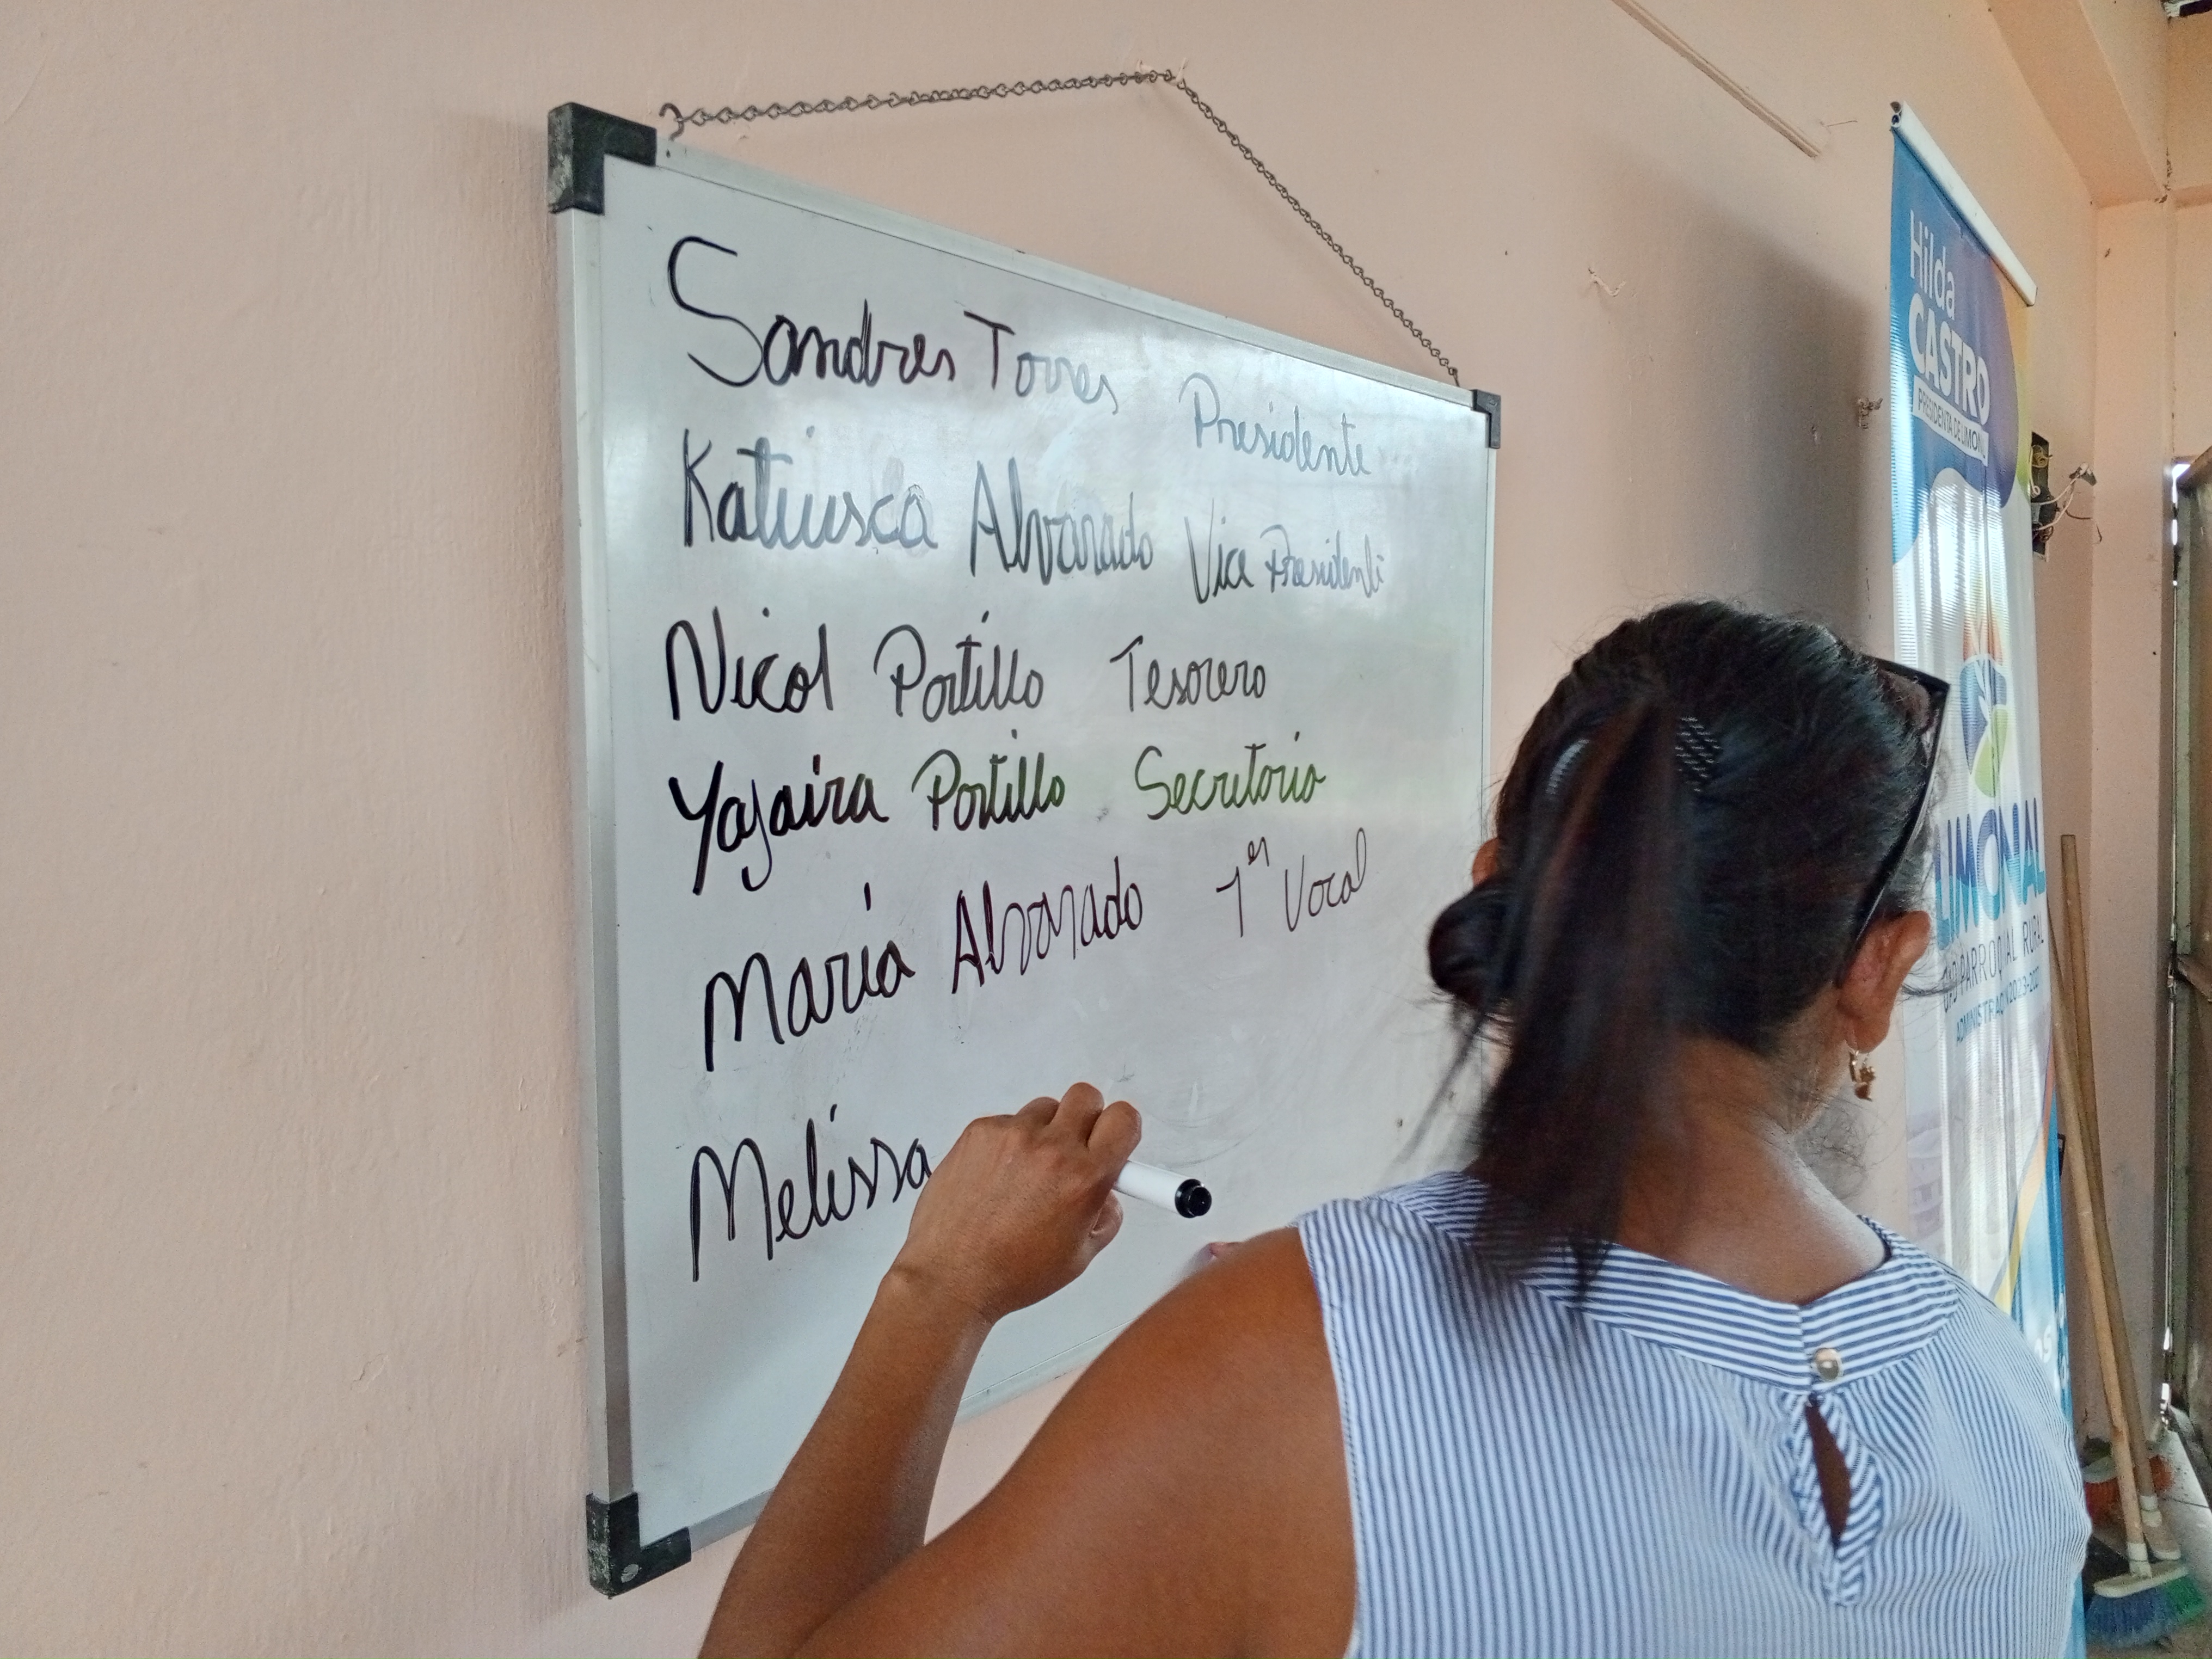 Sandres Torres Presidente
Katiusca Alvarado Vice Presidente
Nicol Portillo Tesorero
Yajaira Portillo Secretorio
María Alvarado 1er Vocal
Melissa
Hilda
CASTRO
PRESIDENTA DE LIMONAL
LIMONAL
GAD PARROQUIAL RURAL
ADMINISTRACIÓN 2023-2027